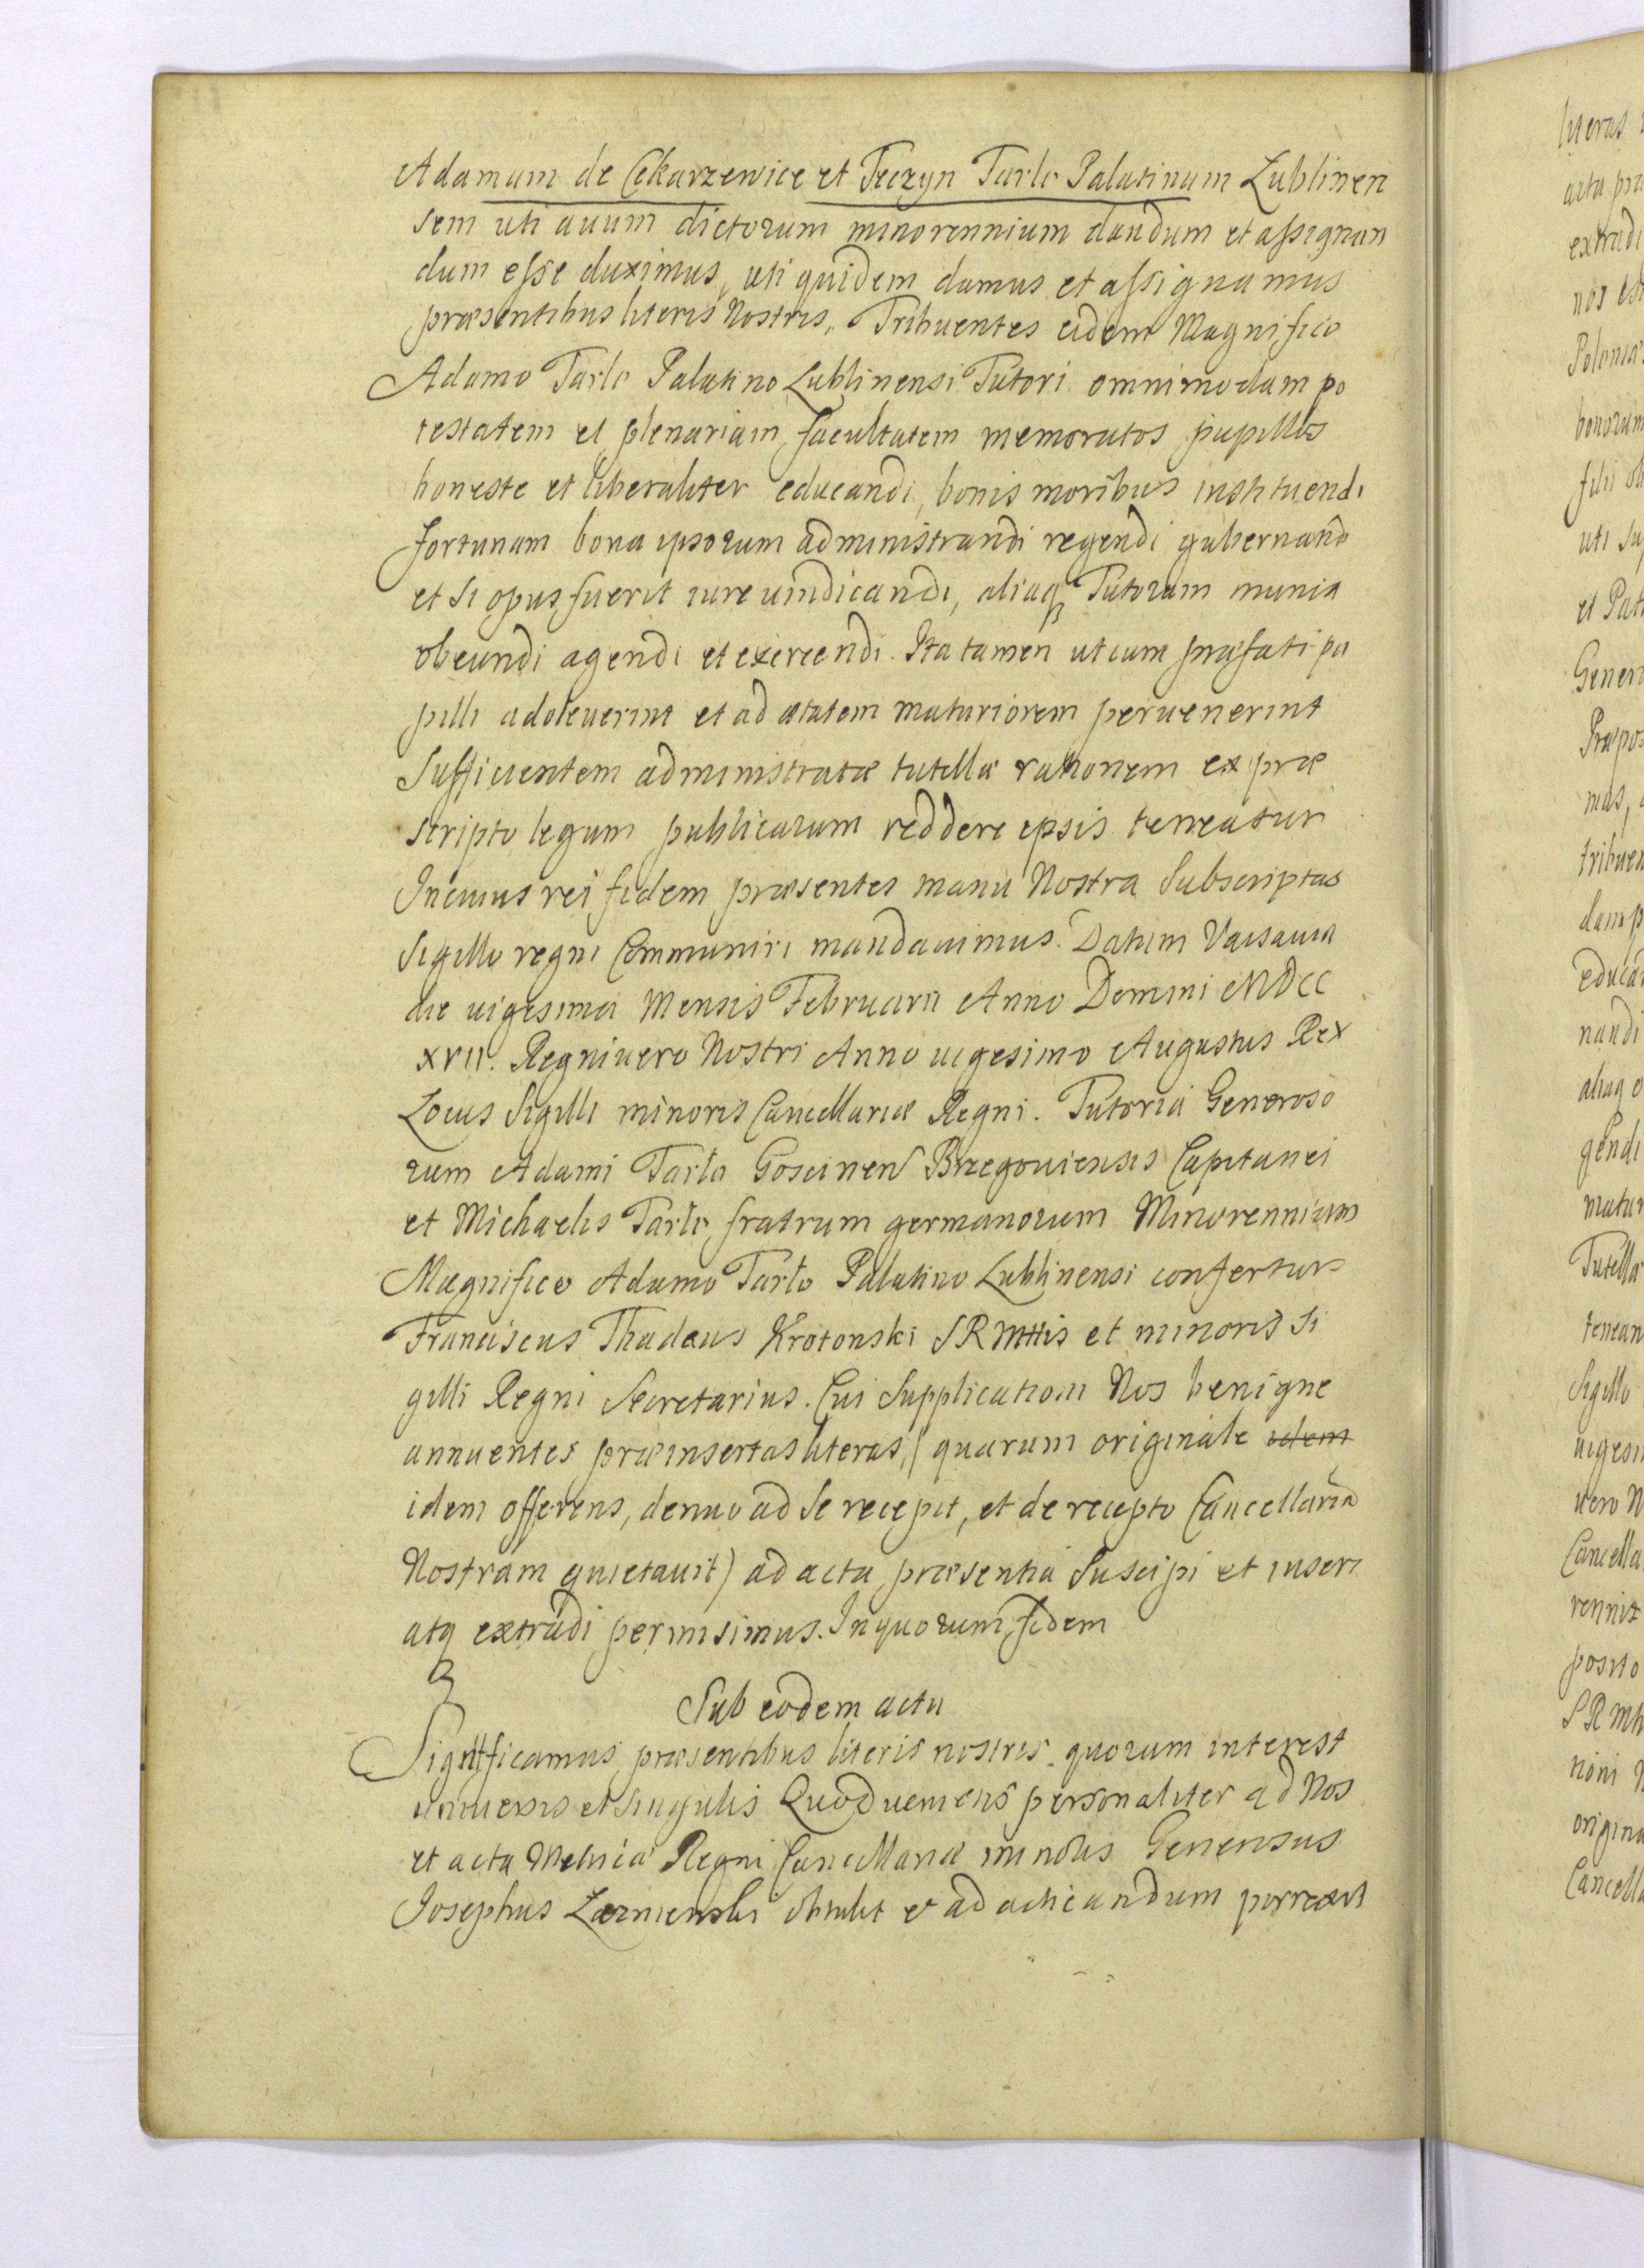 Adamum de Cekarzewice et Teczyn Tarlo Palatinum Lublinen
sem uti auum dictorum minorennium dandum et assignan
dum esse duximus, uti quidem damus et assignamus
præsentibus literis Nostris, Tribuentes eidem Magnifico
Adamo Tarlo Palatino Lublinensi Tutori omnimodam po
testatem et plenariam facultatem memoratos pupillos
honeste et liberaliter educandi, bonis moribus instituendi
fortunam bona ipsorum administrandi regendi gubernand
et si opus fuerit iure uindicandi, aliaq3 Tutorum munia
obeundi agendi et exercendi. Ita tamen ut cum præfati pu
pilli adoleuerint et ad ætatem maturiorem peruenerint
Sufficientem administratæ tutellæ rationem ex præ
scripto legum publicarum reddere ipsis teneatur
In cuius rei fidem præsentes manu Nostra Subscriptas
Sigillo regni Communiri mandauimus. Datum Varsauia
die uigesima Mensis Februarii Anno Domini MDCC
XVII. Regni uero Nostri Anno uigesimo Augustus Rex
Locus Sigilli minoris Cancellariæ Regni. Tutoria Generoso
rum Adami Tarło Goscinen Brzegouiensis Capitanei
et Michaelis Tarło fratrum germanorum Minorennium
Magnifico Adamo Tarło Palatino Lublinensi confertur
Franciscus Thadæus Krotonski SRMttis et minoris Si
gilli Regni Secretarius. Cui Supplicationi Nos benigne
annuentes præinsertas literas, (quarum originale idem
idem offerens, denuo ad se recepit, et de recepto Cancellaria
Nostram quietauit) ad acta præsentia Suscipi et inseri
atq3 extradi permisimus. In quorum fidem
Sub eodem actu
Significamus præsentibus literis nostris quorum interest
uniuersis et singulis Quod ueniens personaliter ad Nos
et acta Metricæ Regni Cancellariæ minoris Generosus
Josephus obtulit et ad acticandum porrexit